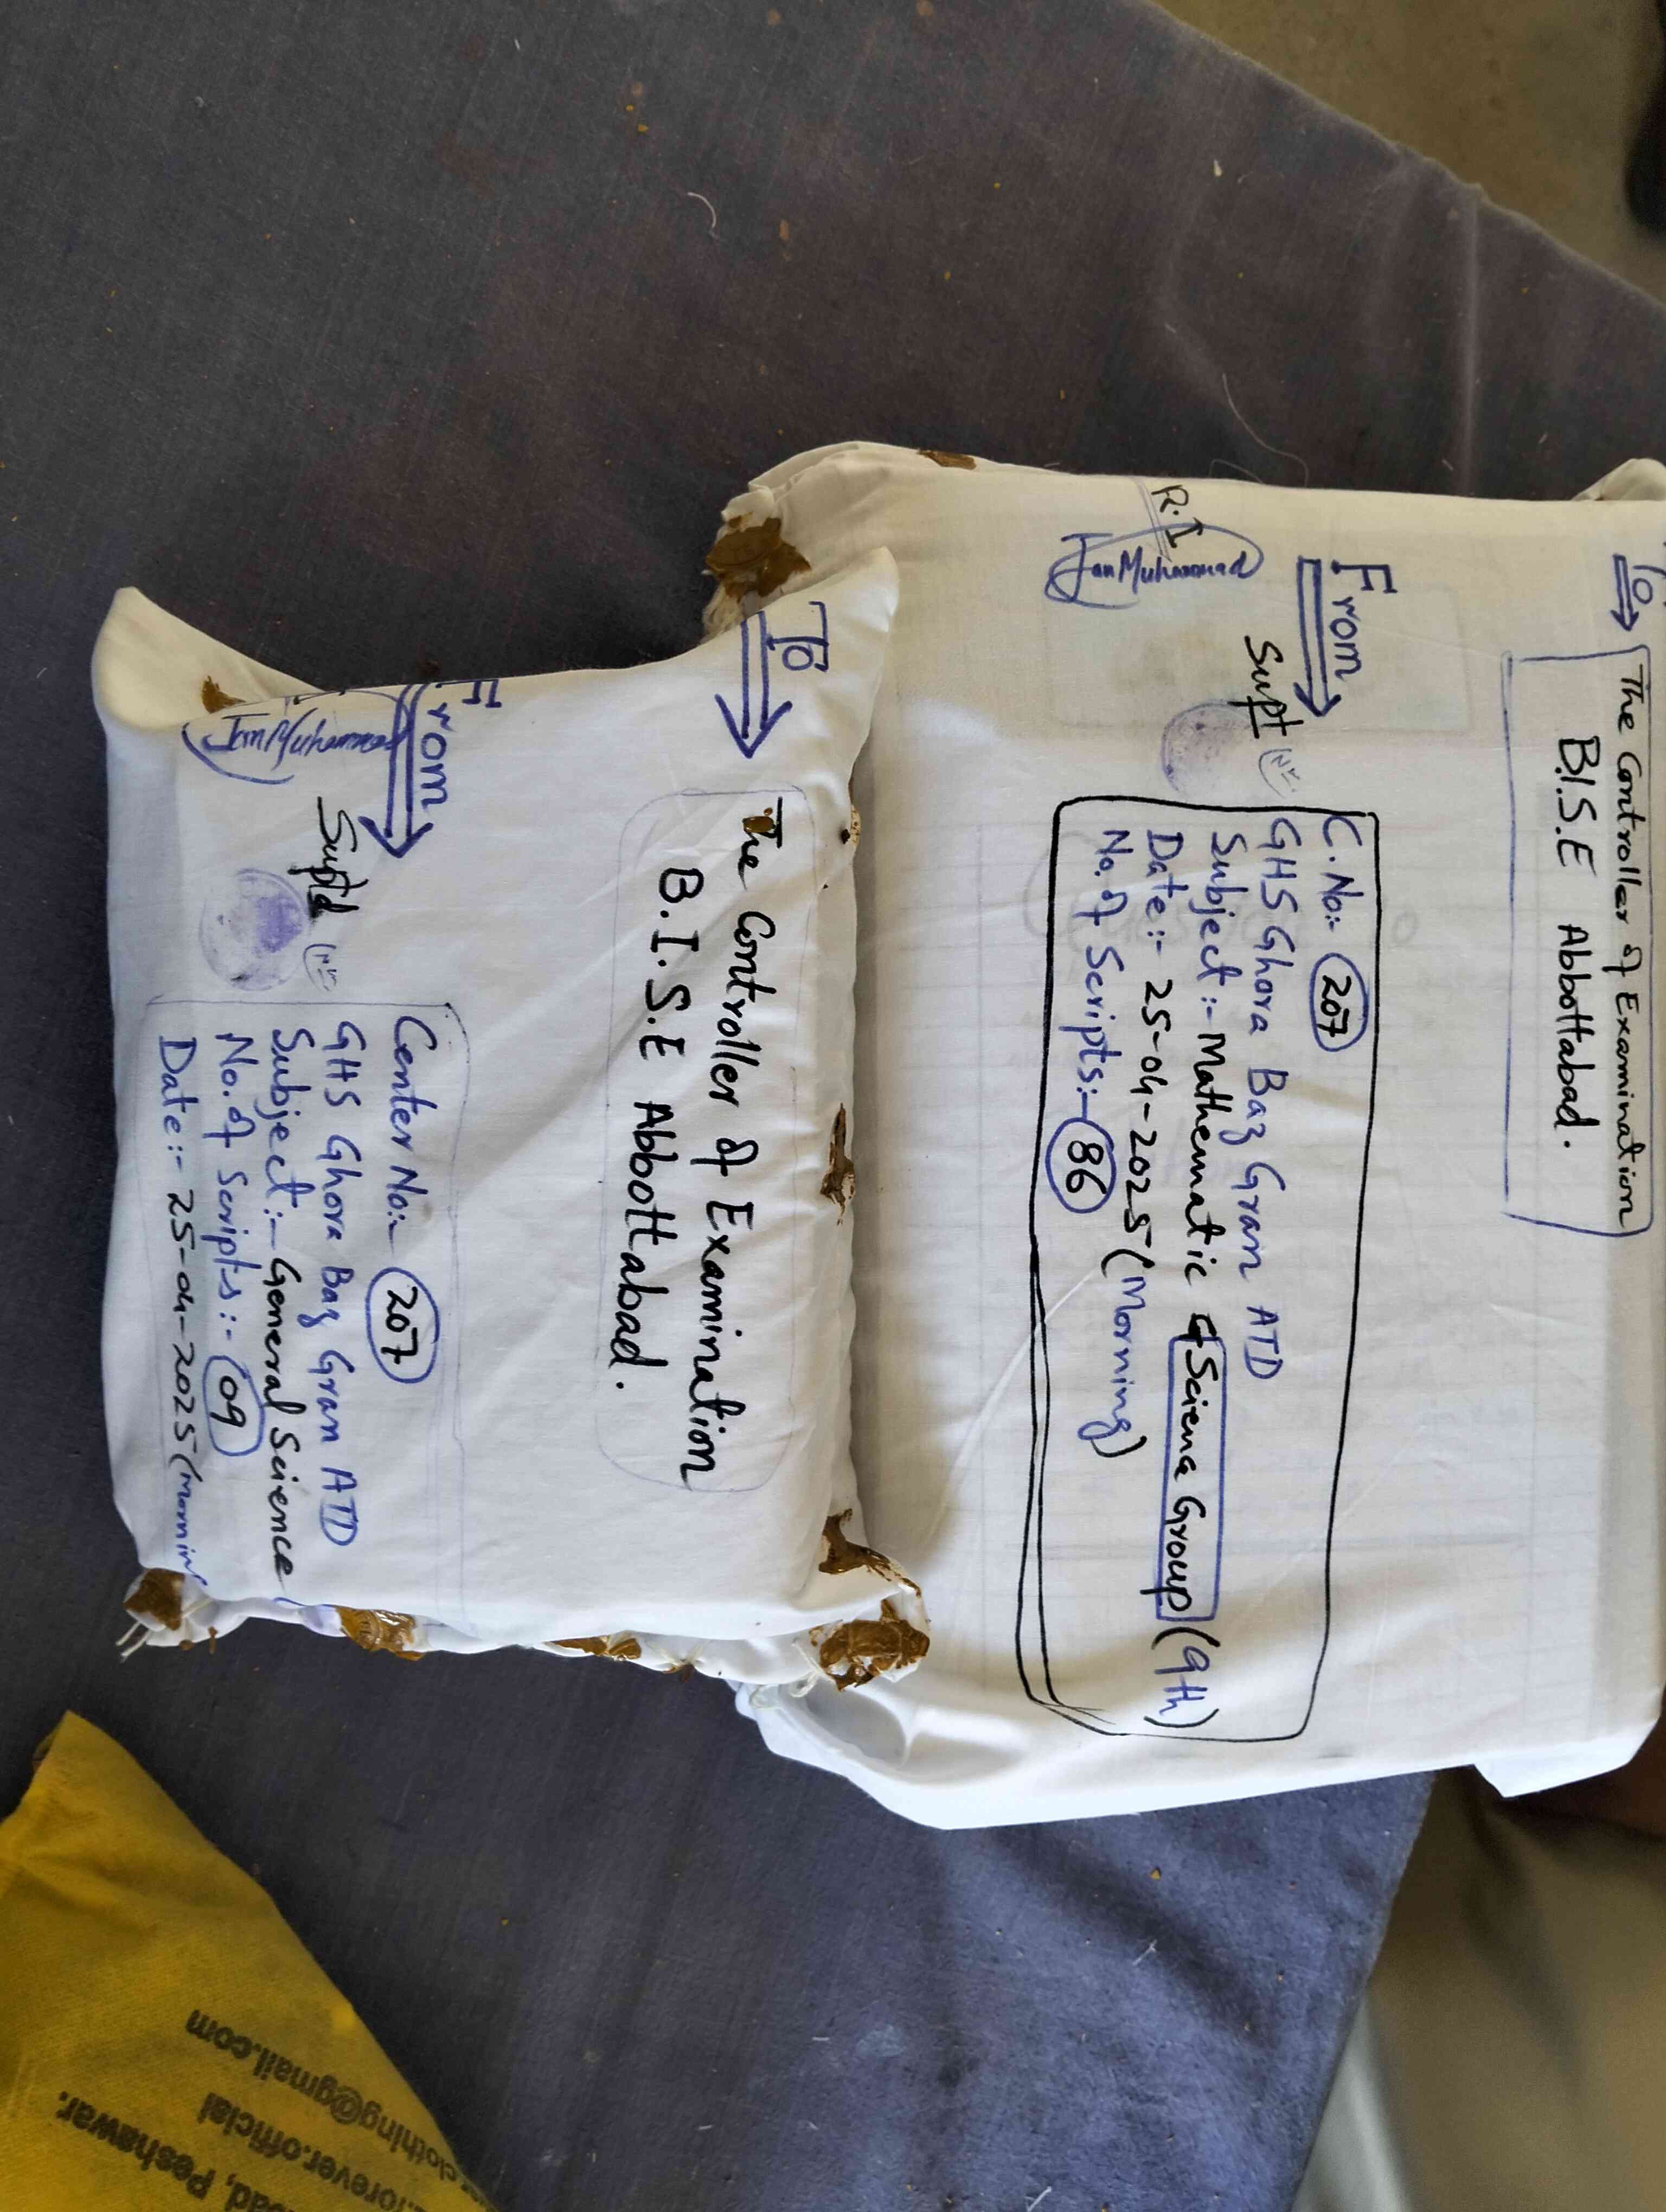 To
The Controller of Examination
B.I.S.E Abbottabad.
From
R.I
Jan Muhammad
Supt
C.No:- 207
GHS Ghora Baz Gran ATD
Subject:- Mathematic of Science Group (9th)
Date:- 25-04-2025 (Morning)
No. of Scripts:- 86
To
The Controller of Examination
B.I.S.E Abbottabad.
From
Jan Muhammad
Suptd
Center No:- 207
GHS Ghora Baz Gran ATD
Subject:- General Science
No. of Scripts:- 09
Date:- 25-04-2025 (Mornin
clothing@gmail.com
forever.official
ad, Peshawar.